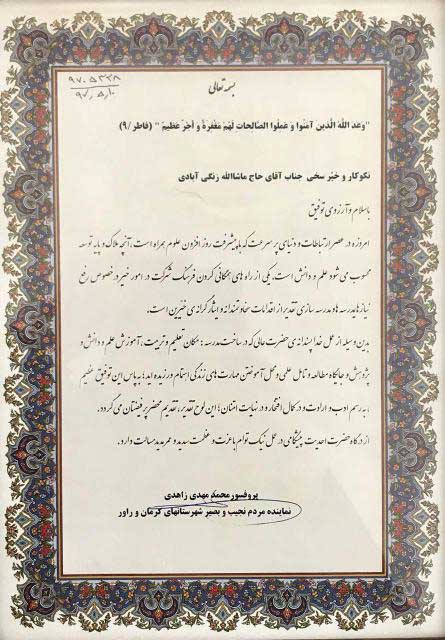 ۹۷۰۵۲۲۸
۹۷٫۵٫۱۰
بسمه تعالی
"وَعَدَ اللَّهُ الَّذینَ آمَنُوا وَ عَمِلُوا الصَّالِحاتِ لَهُمْ مَغْفِرَةٌ وَ أَجْرٌ عَظیمٌ " (فاطر /۹)
نکوکار و خیّر سخی جناب آقای حاج ماشاالله زنگی آبادی
باسلام و آرزوی توفیق
امروزه در عصر ارتباطات و دنیای پر سرعت که با پیشرفت روز افزون علوم همراه است، آنچه ملاک و پایه توسعه
محسوب می شود علم و دانش است. یکی از راه های همگانی کردن فرهنگ شرکت در امور خیر در خصوص رفع
نیازها مدرسه و مدرسه سازی تقدیر از اقدامات سخاوتمندانه و ایثارگرانه ی خیرین است.
بدین وسیله از عمل خدا پسندانه ی حضرت عالی که در ساخت مدرسه: مکان تعلیم و تربیت، آموزش علم و دانش و
پژوهش و جایگاه مطالعه و تامل علمی و محل آموختن مهارت های زندگی اهتمام ورزیده اید؛ به پاس این توفیق عظیم
به رسم ادب و ارادت و در کمال افتخار و در نهایت امتنان؛ این لوح تقدیر، تقدیم محضر پر فیضتان می گردد.
از درگاه حضرت احدیت، پیشگامی در عمل نیک توام با عزت و عظمت سدید و عمر مدید مسالت دارد.
پروفسور محمد مهدی زاهدی
نماینده مردم نجیب و بصیر شهرستانهای کرمان و راور